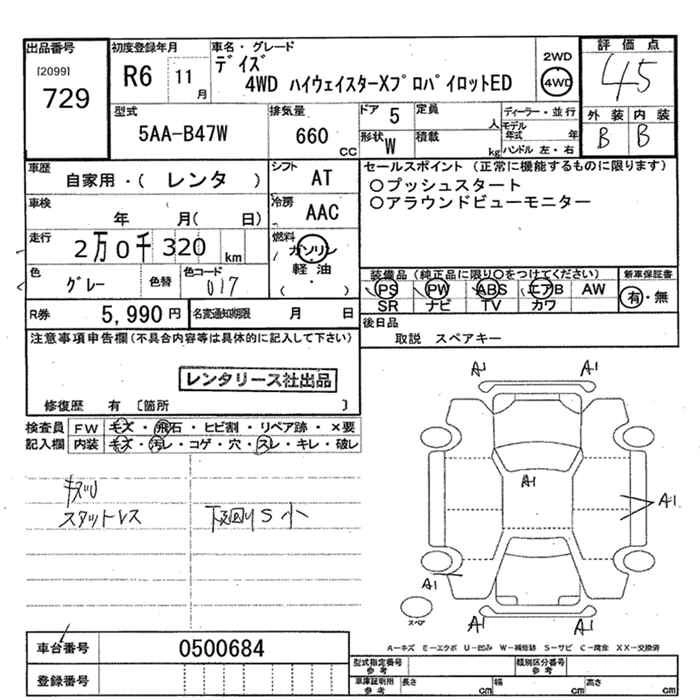 出品番号
[2099]
729
初度登録年月
R6 11月
車名・グレード
デイズ
4WD ハイウェイスターXプロパイロットED
2WD
4WD
評価点
4.5
外装 内装
B B
型式
5AA-B47W
排気量
660 CC
ドア 5
形状 W
定員 人
積載 kg
ディーラー・並行
モデル年式 年
ハンドル 左・右
車歴
自家用・( レンタ )
シフト AT
車検
年 月( 日)
冷房 AAC
走行 2万0千320km
燃料 ガソリン
軽油
( ・ )
色 グレー 色替
色コード 017
セールスポイント (正常に機能するものに限ります)
○プッシュスタート
○アラウンドビューモニター
装備品(純正品に限り○をつけてください) 新車保証書
PS PW ABS エアB AW 有・無
SR ナビ TV カワ
R券 5,990円
名変通知期限 月 日
後日品
取説 スペアキー
注意事項申告欄(不具合内容等は具体的に記入して下さい)
レンタリース社出品
修復歴 有 [箇所 ]
検査員 FW キズ・飛石・ヒビ割・リペア跡・×要
記入欄 内装 キズ・汚レ・コゲ・穴・スレ・キレ・破レ
キズU
スタットレス 下廻りS小
A1 A1
A1
A1
A1
スペア
A1 A1
A-キズ E-エクボ U-凹み W-補修跡 S-サビ C-腐食 XX-交換済
車台番号 0500684
登録番号
型式指定番号 参考 類別区分番号 参考
車庫証明用 参考 長さ cm 幅 cm 高さ cm